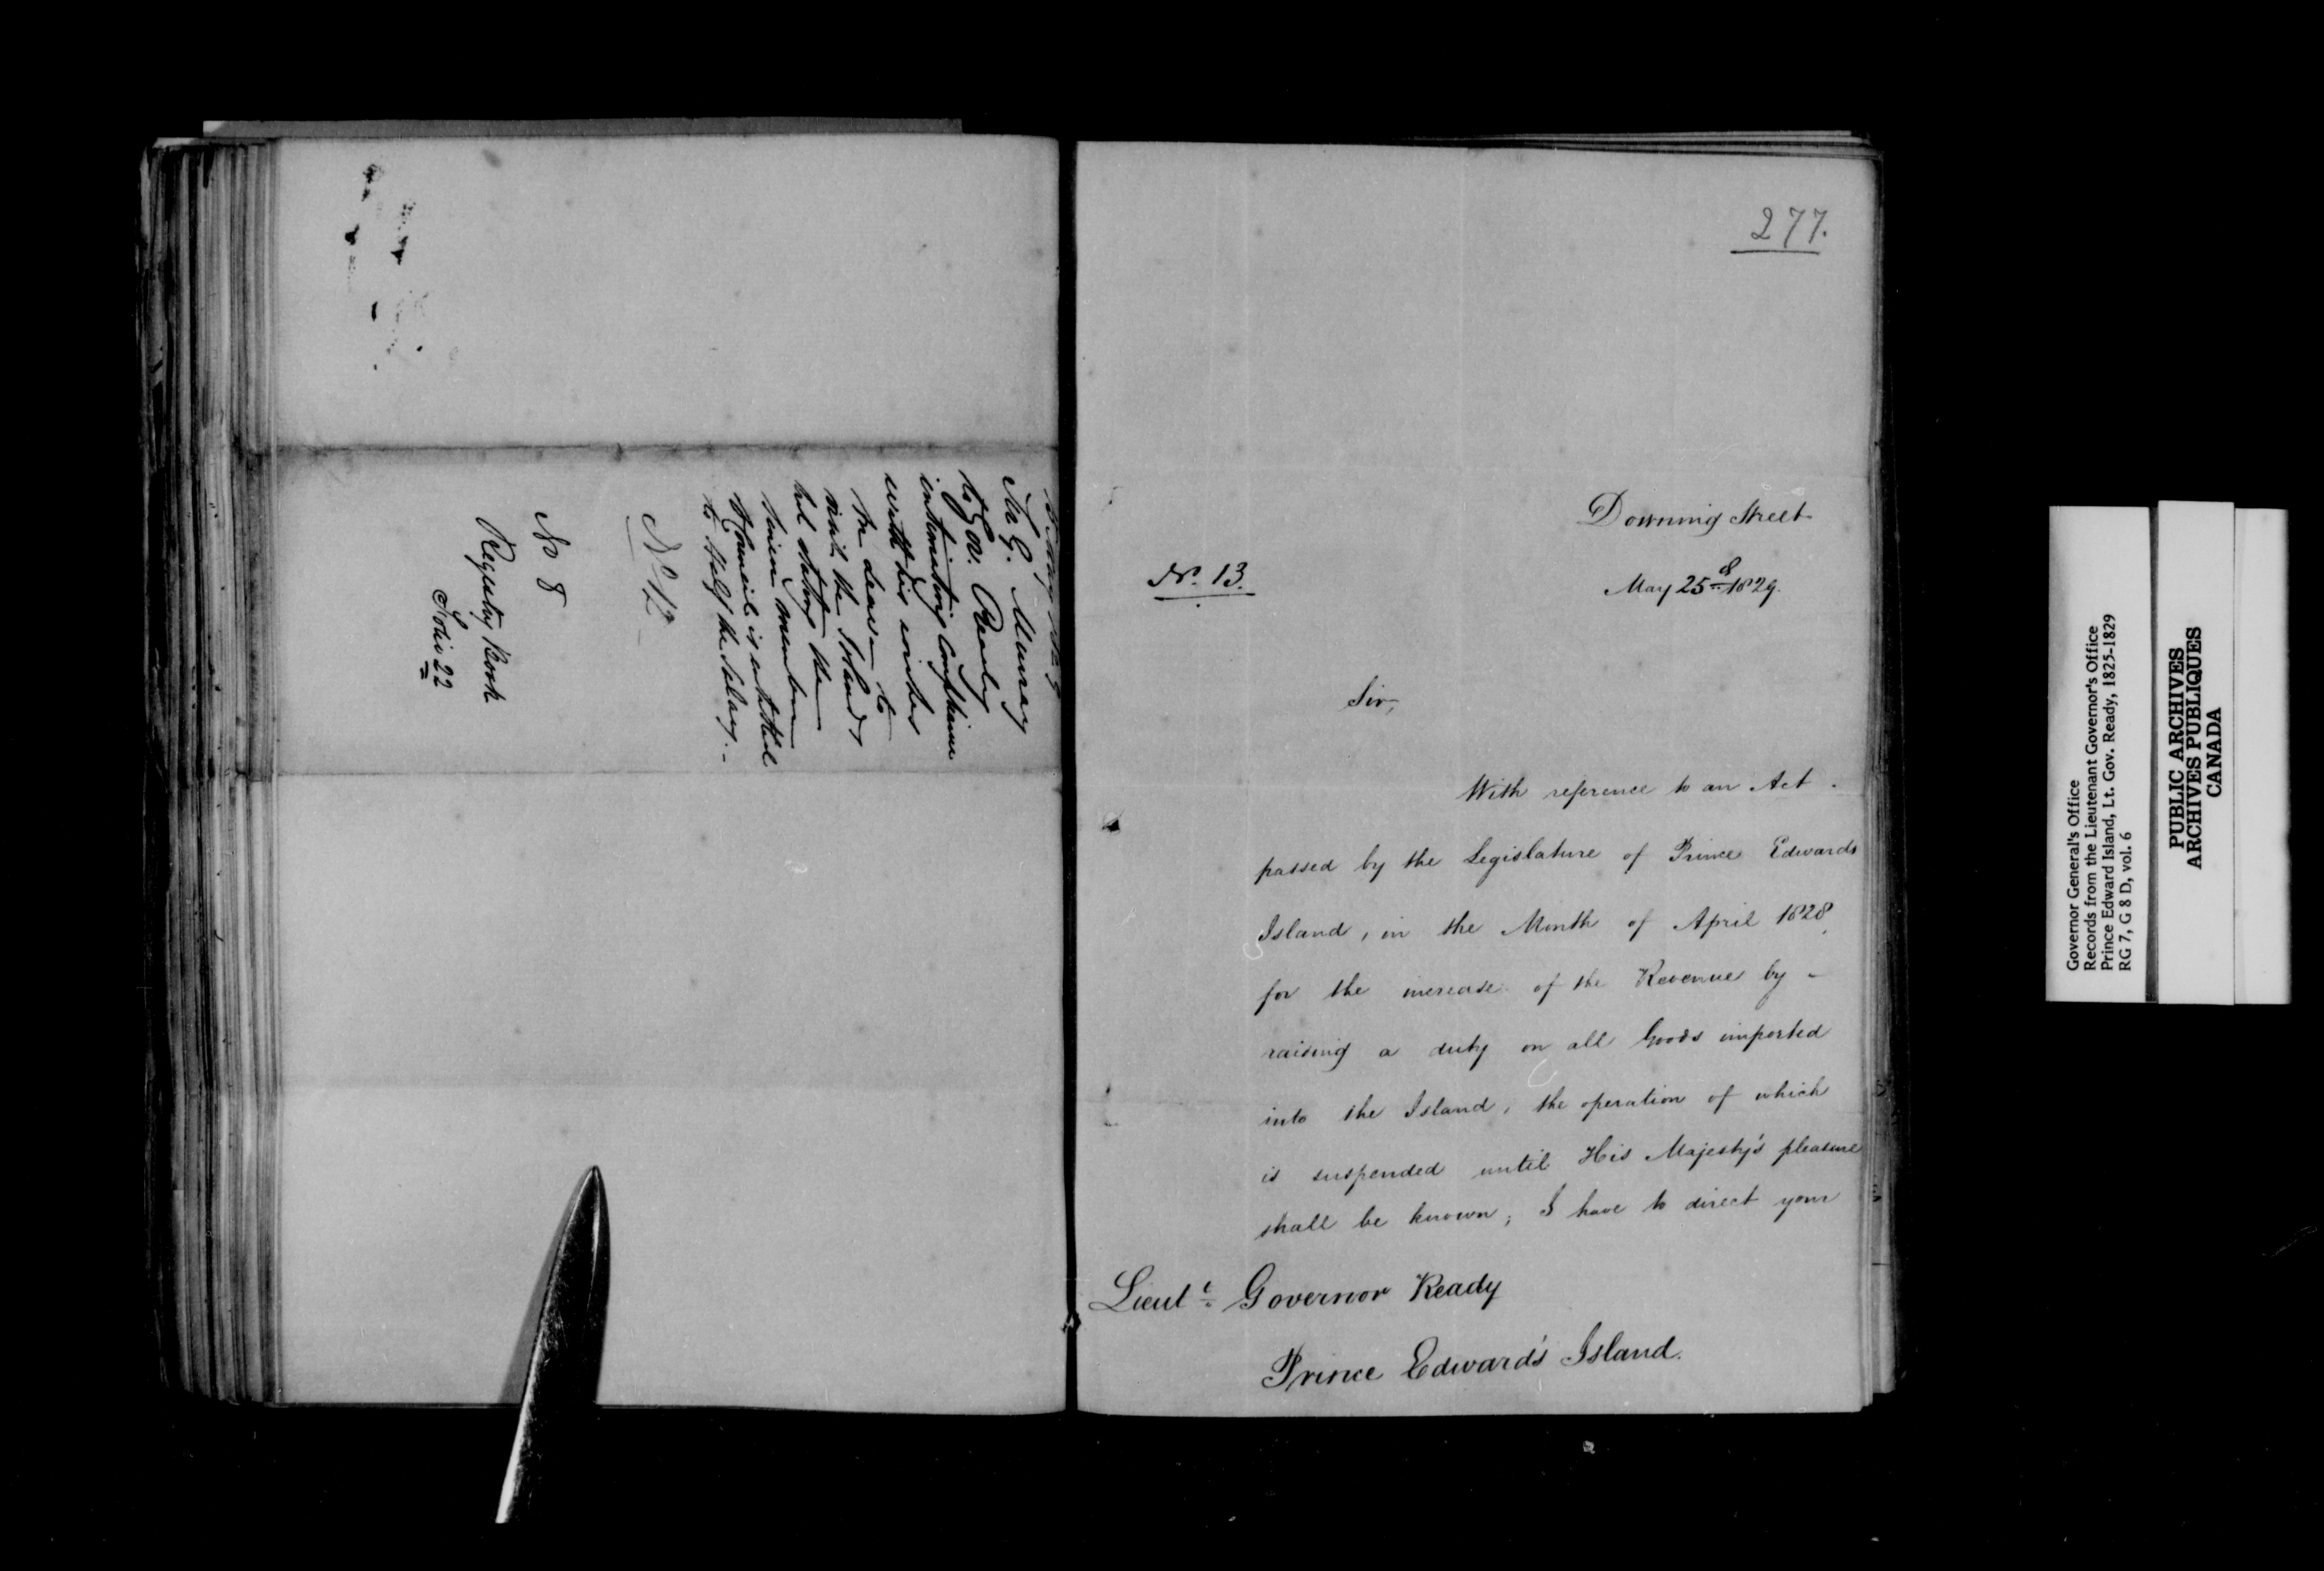 Sir G. Murray
to Gov. Ready
intimating compliance
with his wishes
for leave to
visit the Island
and stating the
Senior member
of Council is entitled
to half the Salary.
No. 12
No 8
Registry Book
Folio 22
277.
Downing Street
No. 13.
May 25th 1829.
Sir,
With reference to an Act
passed by the Legislature of Prince Edwards
Island, in the Month of April 1828,
for the increase of the Revenue by
raising a duty on all Goods imported
into the Island, the operation of which
is suspended until His Majesty's pleasure
shall be known; I have to direct your
Lieut. Governor Ready
Prince Edward's Island.
Governor General's Office
Records from the Lieutenant Governor's Office
Prince Edward Island, Lt. Gov. Ready, 1825-1829
RG 7, G 8 D, vol. 6
PUBLIC ARCHIVES
ARCHIVES PUBLIQUES
CANADA